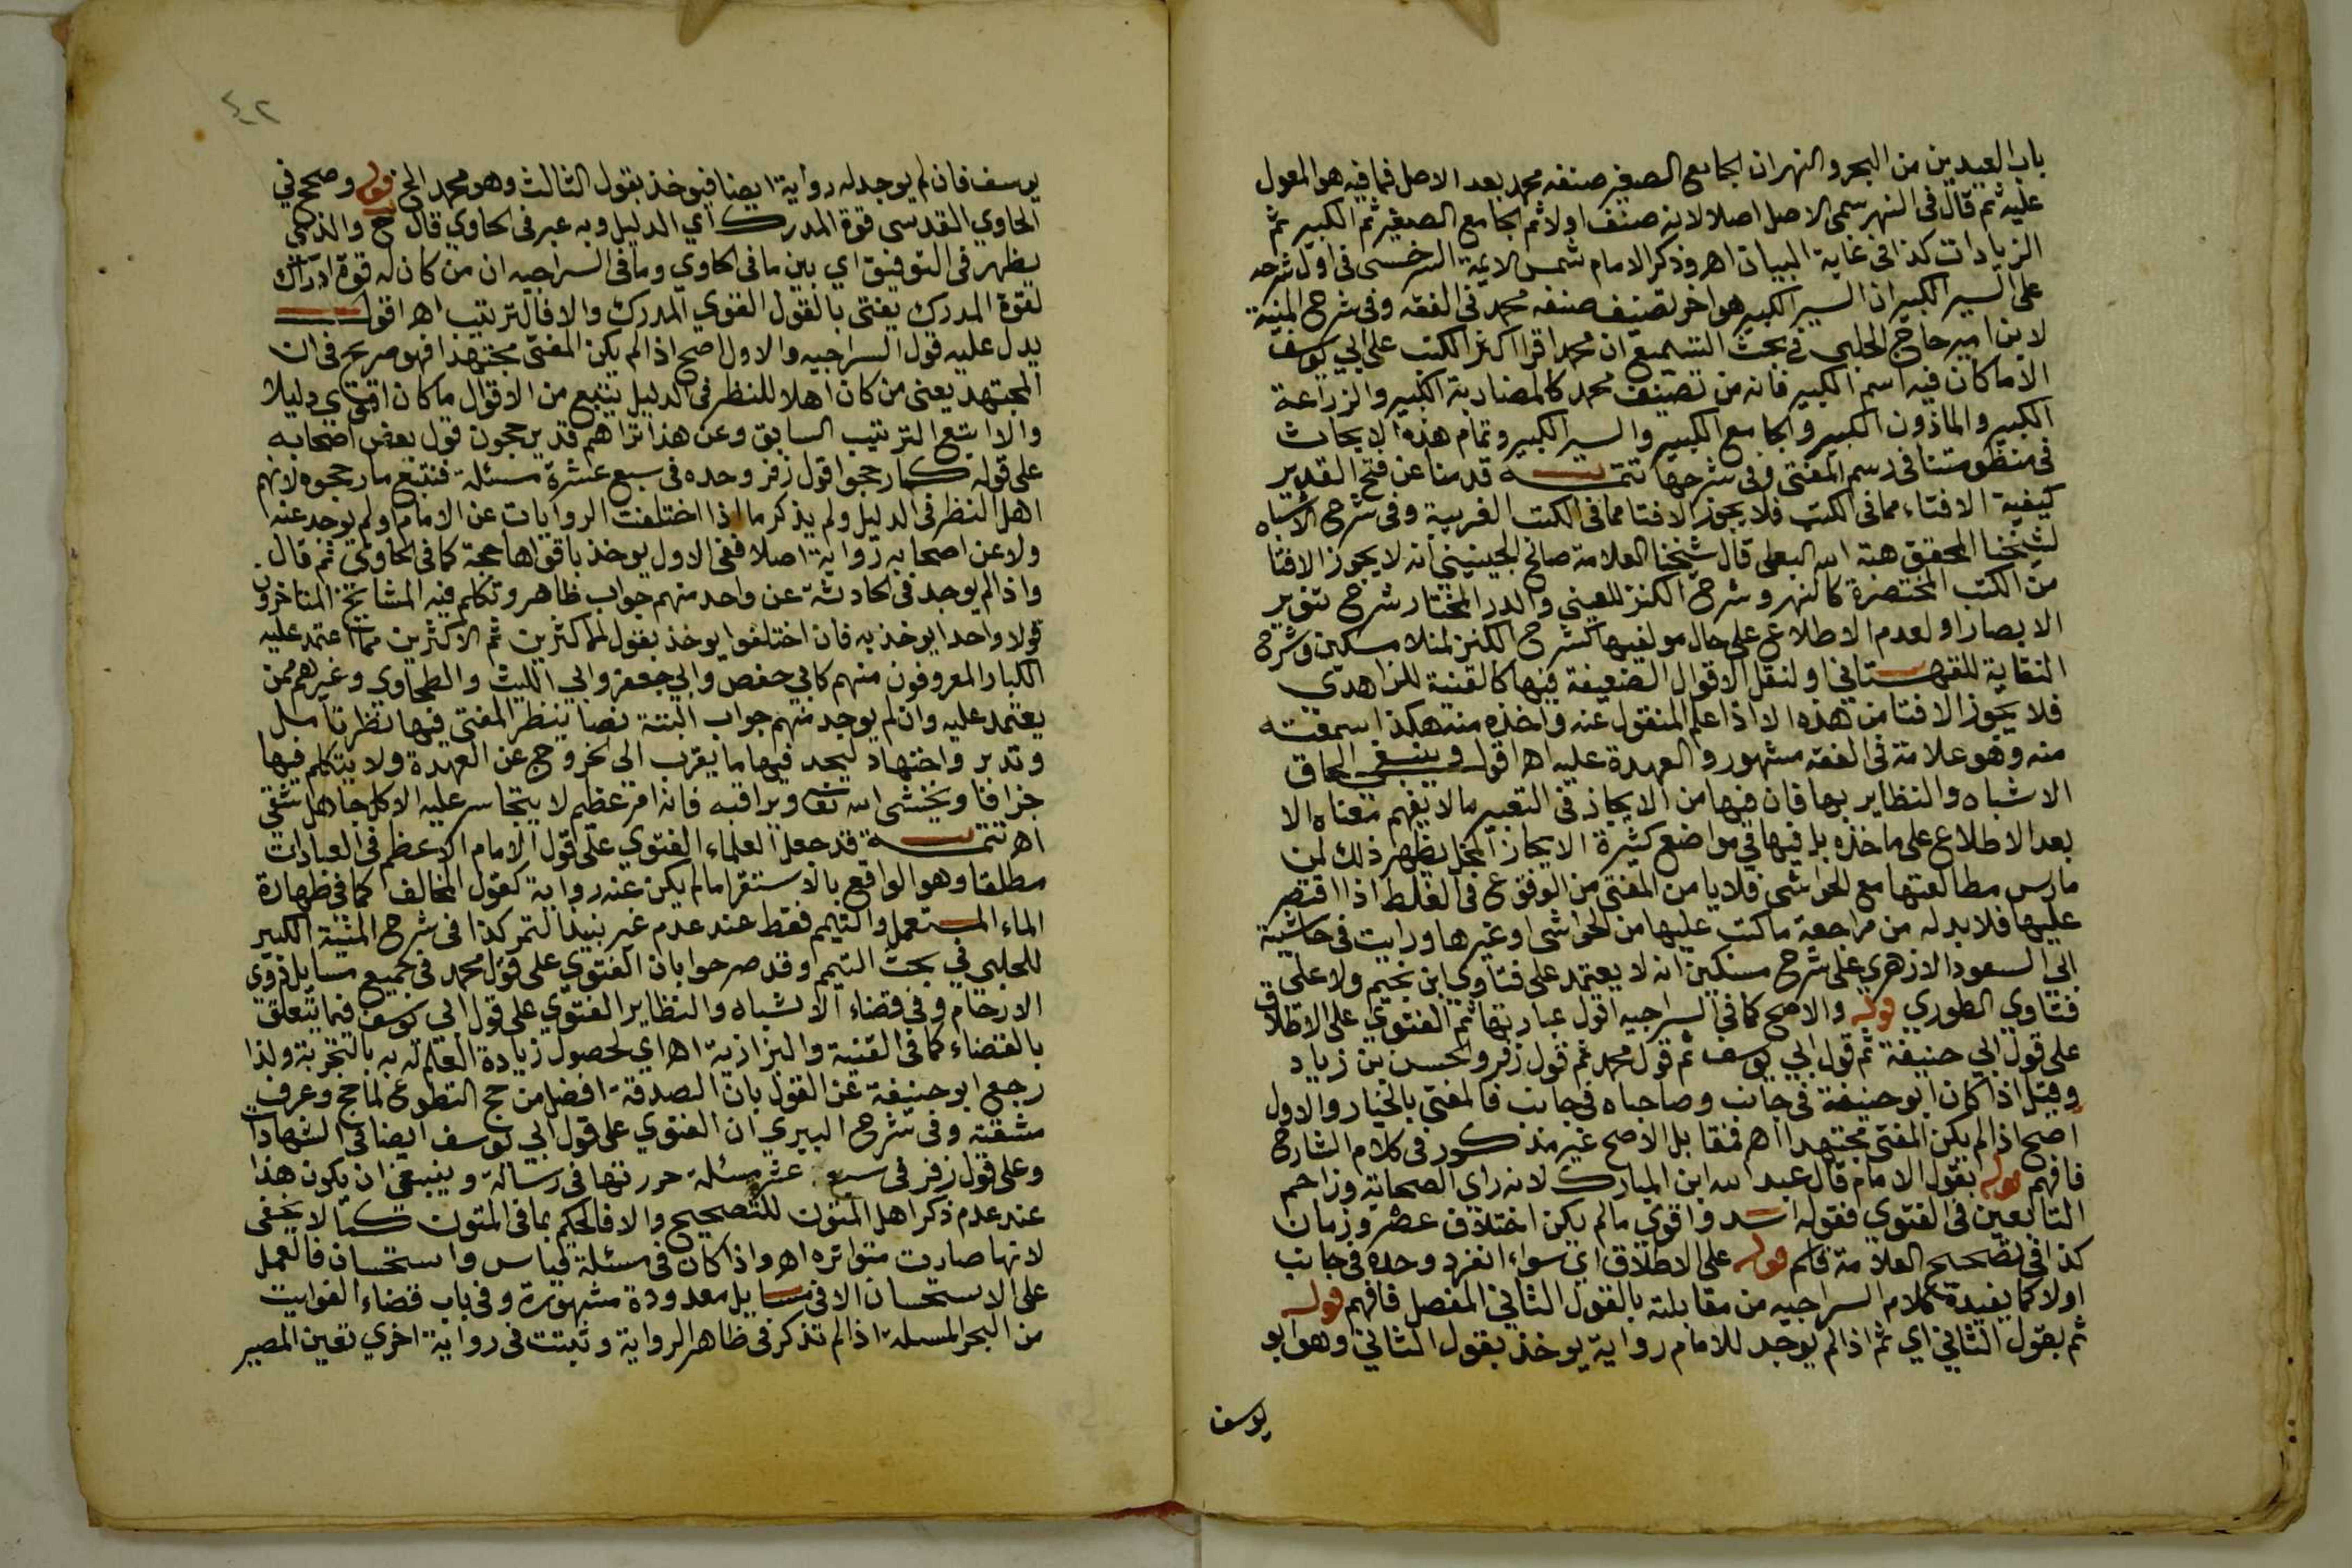 باب العيدين من البحر والنهران الجامع الصغير صنفه محمد بعد الاصل فما فيه هو المعول
عليه ثم قال في النهر سمى الاصل اصلا لانه صنف اولا ثم الجامع الصغير ثم الكبير ثم
الزيادات كذا في غاية البيان اهـ وذكر الامام شمس الايمة السرخسي في اول شرحه
على السير الكبير ان السير الكبير هو اخر تصنيف صنفه محمد في الفقه وفي شرح المنية
لابن امير حاج الحلبي في بحث التسميع ان محمدا قرا اكثر الكتب على ابي يوسف
الا ما كان فيه اسم الكبير فانه من تصنيف محمد كالمضاربة الكبير والزراعة
الكبير والماذون الكبير والجامع الكبير والسير الكبير وتمام هذه الابحاث
في منظومتنا في رسم المفتي وفي شرحها تتمـــة قدمنا عن فتح القدير
كيفية الافتاء مما في الكتب فلا يجوز الافتا مما في الكتب الغريبة وفي شرح الاشباه
لشيخنا المحقق هبة الله البعلى قال شيخنا العلامة صالح الجينيني انه لا يجوز الافتا
من الكتب المختصرة كالنهر وشرح الكنز للعيني والدر المختار شرح تنوير
الابصار او لعدم الاطلاع على حال مولفيها كشرح الكنز لمنلا مسكين وشرح
النقاية للقهستاني او لنقل الاقوال الضعيفة فيها كالقنية للزاهدي
فلا يجوز الافتا من هذه الا اذا علم المنقول عنه واخذه منه هكذا سمعته
منه وهو علامة في الفقه مشهور والعهدة عليه اهـ اقول وينبغي الحاق
الاشباه والنظاير بها فان فيها من الايجاز في التعبير مالا يفهم معناه الا
بعد الاطلاع على ماخذه بل فيها في مواضع كثيرة الايجاز المخل يظهر ذلك لمن
مارس مطالعتها مع الحواشي فلا يامن المفتي من الوقوع في الغلط اذا اقتصر
عليها فلا بد له من مراجعة ما كتب عليها من الحواشي او غيرها ورايت في حاشية
ابي السعود الازهري على شرح مسكين انه لا يعتمد على فتاوي ابن نجيم ولا على
فتاوي الطوري قوله والاصح كما في السراجيه اقول عبارتها ثم الفتوي على الاطلاق
على قول ابي حنيفة ثم قول ابي يوسف ثم قول محمد ثم قول زفر والحسن بن زياد
وقيل اذا كان ابو حنيفة في جانب وصاحباه في جانب فالمفتي بالخيار والاول
اصح اذا لم يكن المفتي مجتهدا اهـ فمقابل الاصح غير مذكور في كلام الشارح
فافهم قوله بقول الامام قال عبد الله ابن المبارك لانه راي الصحابة وزاحم
التابعين في الفتوي فقوله اسد واقوي مالم يكن اختلاف عصر وزمان
كذا في تصحيح العلامة قاسم قوله على الاطلاق اي سواء انفرد وحده في جانب
اولا كما يفيدة كلام السراجيه من مقابلته بالقول الثاني المفصل فافهم قوله
ثم بقول الثاني اي ثم اذا لم يوجد للامام رواية يوخذ بقول الثاني وهو ابو
يوسف
٤٢
يوسف فان لم يوجد له رواية ايضا فيوخذ بقول الثالث وهو محمد الخ قوله وصحح في
الحاوي القدسي قوة المدرك اي الدليل وبه عبر في الحاوي قال ح والذي
يظهر في التوفيق اي بين ما في الحاوي وما في السراجيه ان من كان له قوة ادراك
لقوة المدرك يفتي بالقول القوي المدرك والا فالترتيب اهـ اقول
يدل عليه قول السراجيه والاول اصح اذا لم يكن المفتي مجتهدا فهو صريح في ان
المجتهد يعني من كان اهلا للنظر في الدليل يتبع من الاقوال ما كان اقوي دليلا
والا اتبع الترتيب السابق وعن هذا تراهم قد يرجحون قول بعض اصحابه
على قوله كما رجحوا قول زفر وحده في سبع عشرة مسئلة فنتبع ما رجحوه لانهم
اهل النظر في الدليل ولم يذكر ما اذا اختلفت الروايات عن الامام او لم يوجد عنه
ولا عن اصحابه رواية اصلا ففي الاول يوخذ باقواها حجة كما في الحاوي ثم قال
واذا لم يوجد في الحادثة عن واحد منهم جواب ظاهر وتكلم فيه المشايخ المتاخرون
قولا واحدا يوخذ به فان اختلفوا يوخذ بقول الاكثرين ثم الاكثرين مما اعتمد عليه
الكبار المعروفون منهم كابي حفص وابي جعفر وابي الليث والطحاوي وغيرهم ممن
يعتمد عليه وان لم يوجد منهم جواب البتة نصا ينظر المفتي فيها نظر تامل
وتدبر واجتهاد ليجد فيها ما يقرب الى الخروج عن العهدة ولا يتكلم فيها
جزافا ويخشي الله تعا ويراقبه فانه امر عظيم لا يتجاسر عليه الا كل جاهل شقي
اهـ تتمـــة قد جعل العلماء الفتوي على قول الامام الاعظم في العبادات
مطلقا وهو الواقع بالاستقرا مالم يكن عنه رواية كقول المخالف كما في طهارة
الماء المستعمل والتيمم فقط عند عدم غير نبيذ التمر كذا في شرح المنية الكبير
للحلبي في بحث التيمم وقد صرحوا بان الفتوي على قول محمد في جميع مسايل ذوي
الارحام وفي قضاء الاشباه والنظاير الفتوي على قول ابي يوسف فيما يتعلق
بالقضاء كما في القنية والبزازية اهـ اي لحصول زيادة العلم له به بالتجربة ولذا
رجع ابو حنيفة عن القول بان الصدقة افضل من حج التطوع لما حج وعرف
مشقته وفي شرح البيري ان الفتوي على قول ابي يوسف ايضا في الشهادات
وعلى قول زفر في سبع عشر مسئلة حررتها في رسالة وينبغي ان يكون هذا
عند عدم ذكر اهل المتون للتصحيح والا فالحكم بما في المتون كما لا يخفى
لانها صارت متواتره اهـ واذا كان في مسئلة قياس واستحسان فالعمل
على الاستحسان الا في مسايل معدودة مشهورة وفي باب قضاء الفوايت
من البحر المسله اذا لم تذكر في ظاهر الرواية وثبتت في رواية اخري تعين المصير